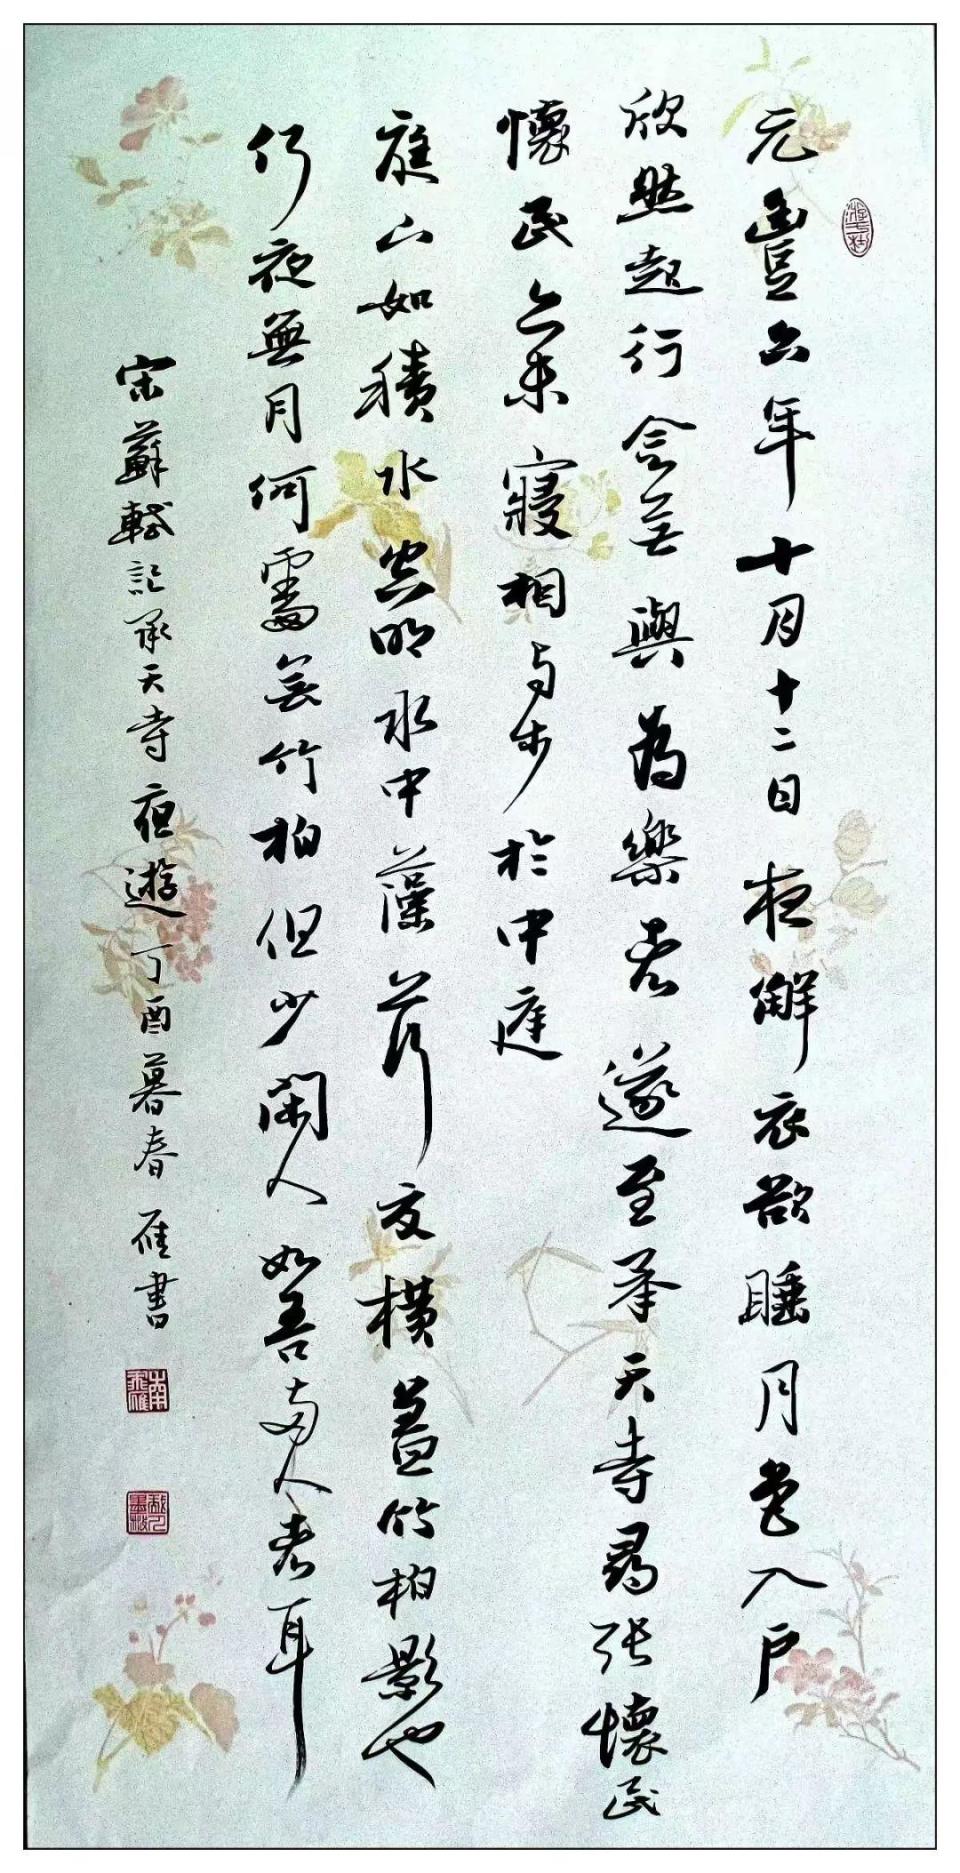 元豐六年十月十二日夜解衣欲睡月色入户
欣然起行念無與為樂者遂至承天寺尋張懷民
懷民亦未寢相与步於中庭
庭下如積水空明水中藻荇交橫蓋竹柏影也
何夜無月何處無竹柏但少閑人如吾兩人者耳
宋蘇軾記承天寺夜遊丁酉暮春雁書